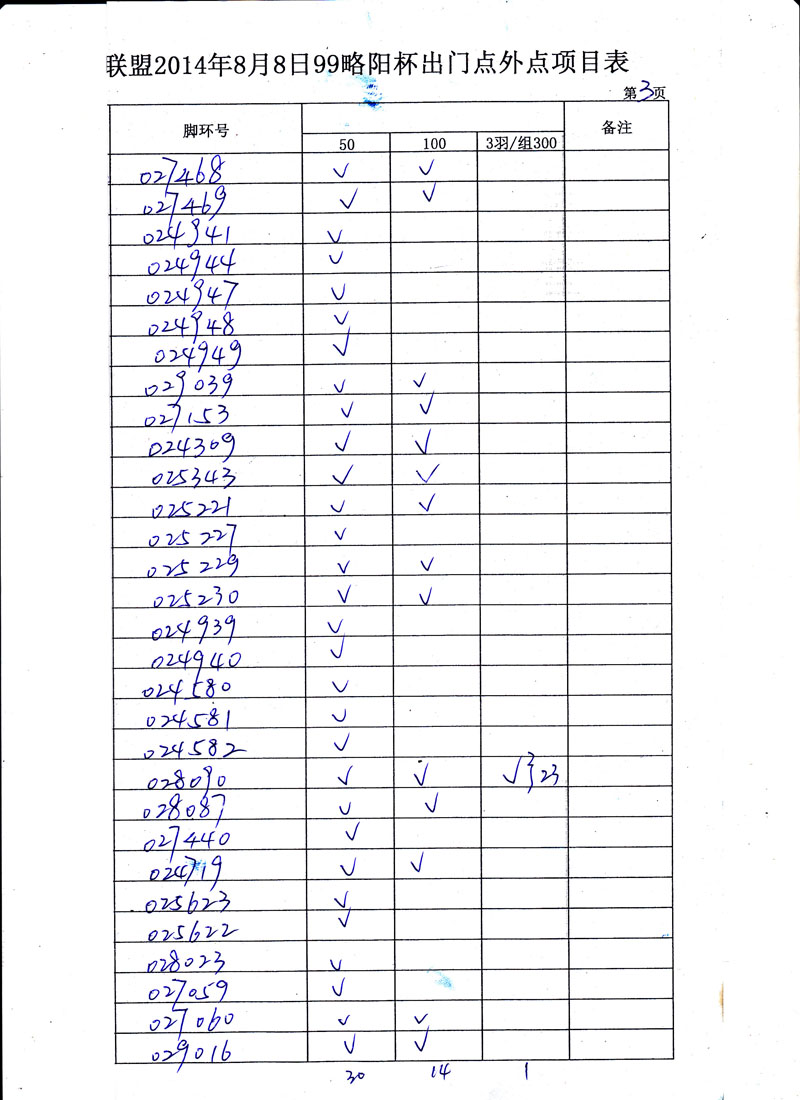 联盟2014年8月8日99略阳杯出门点外点项目表
第3页
脚环号 备注
50 100 3羽/组300
027468 ✓ ✓
027469 ✓ ✓
024941 ✓
024944 ✓
024947 ✓
024948 ✓
024949 ✓
029039 ✓ ✓
027153 ✓ ✓
024309 ✓ ✓
025343 ✓ ✓
025221 ✓ ✓
025227 ✓
025229 ✓ ✓
025230 ✓ ✓
024939 ✓
024940 ✓
024580 ✓
024581 ✓
024582 ✓
028090 ✓ ✓ ✓}23
028087 ✓ ✓
027440 ✓
024719 ✓ ✓
025623 ✓
025622 ✓
028023 ✓
027059 ✓
027060 ✓ ✓
029016 ✓ ✓
30 14 1